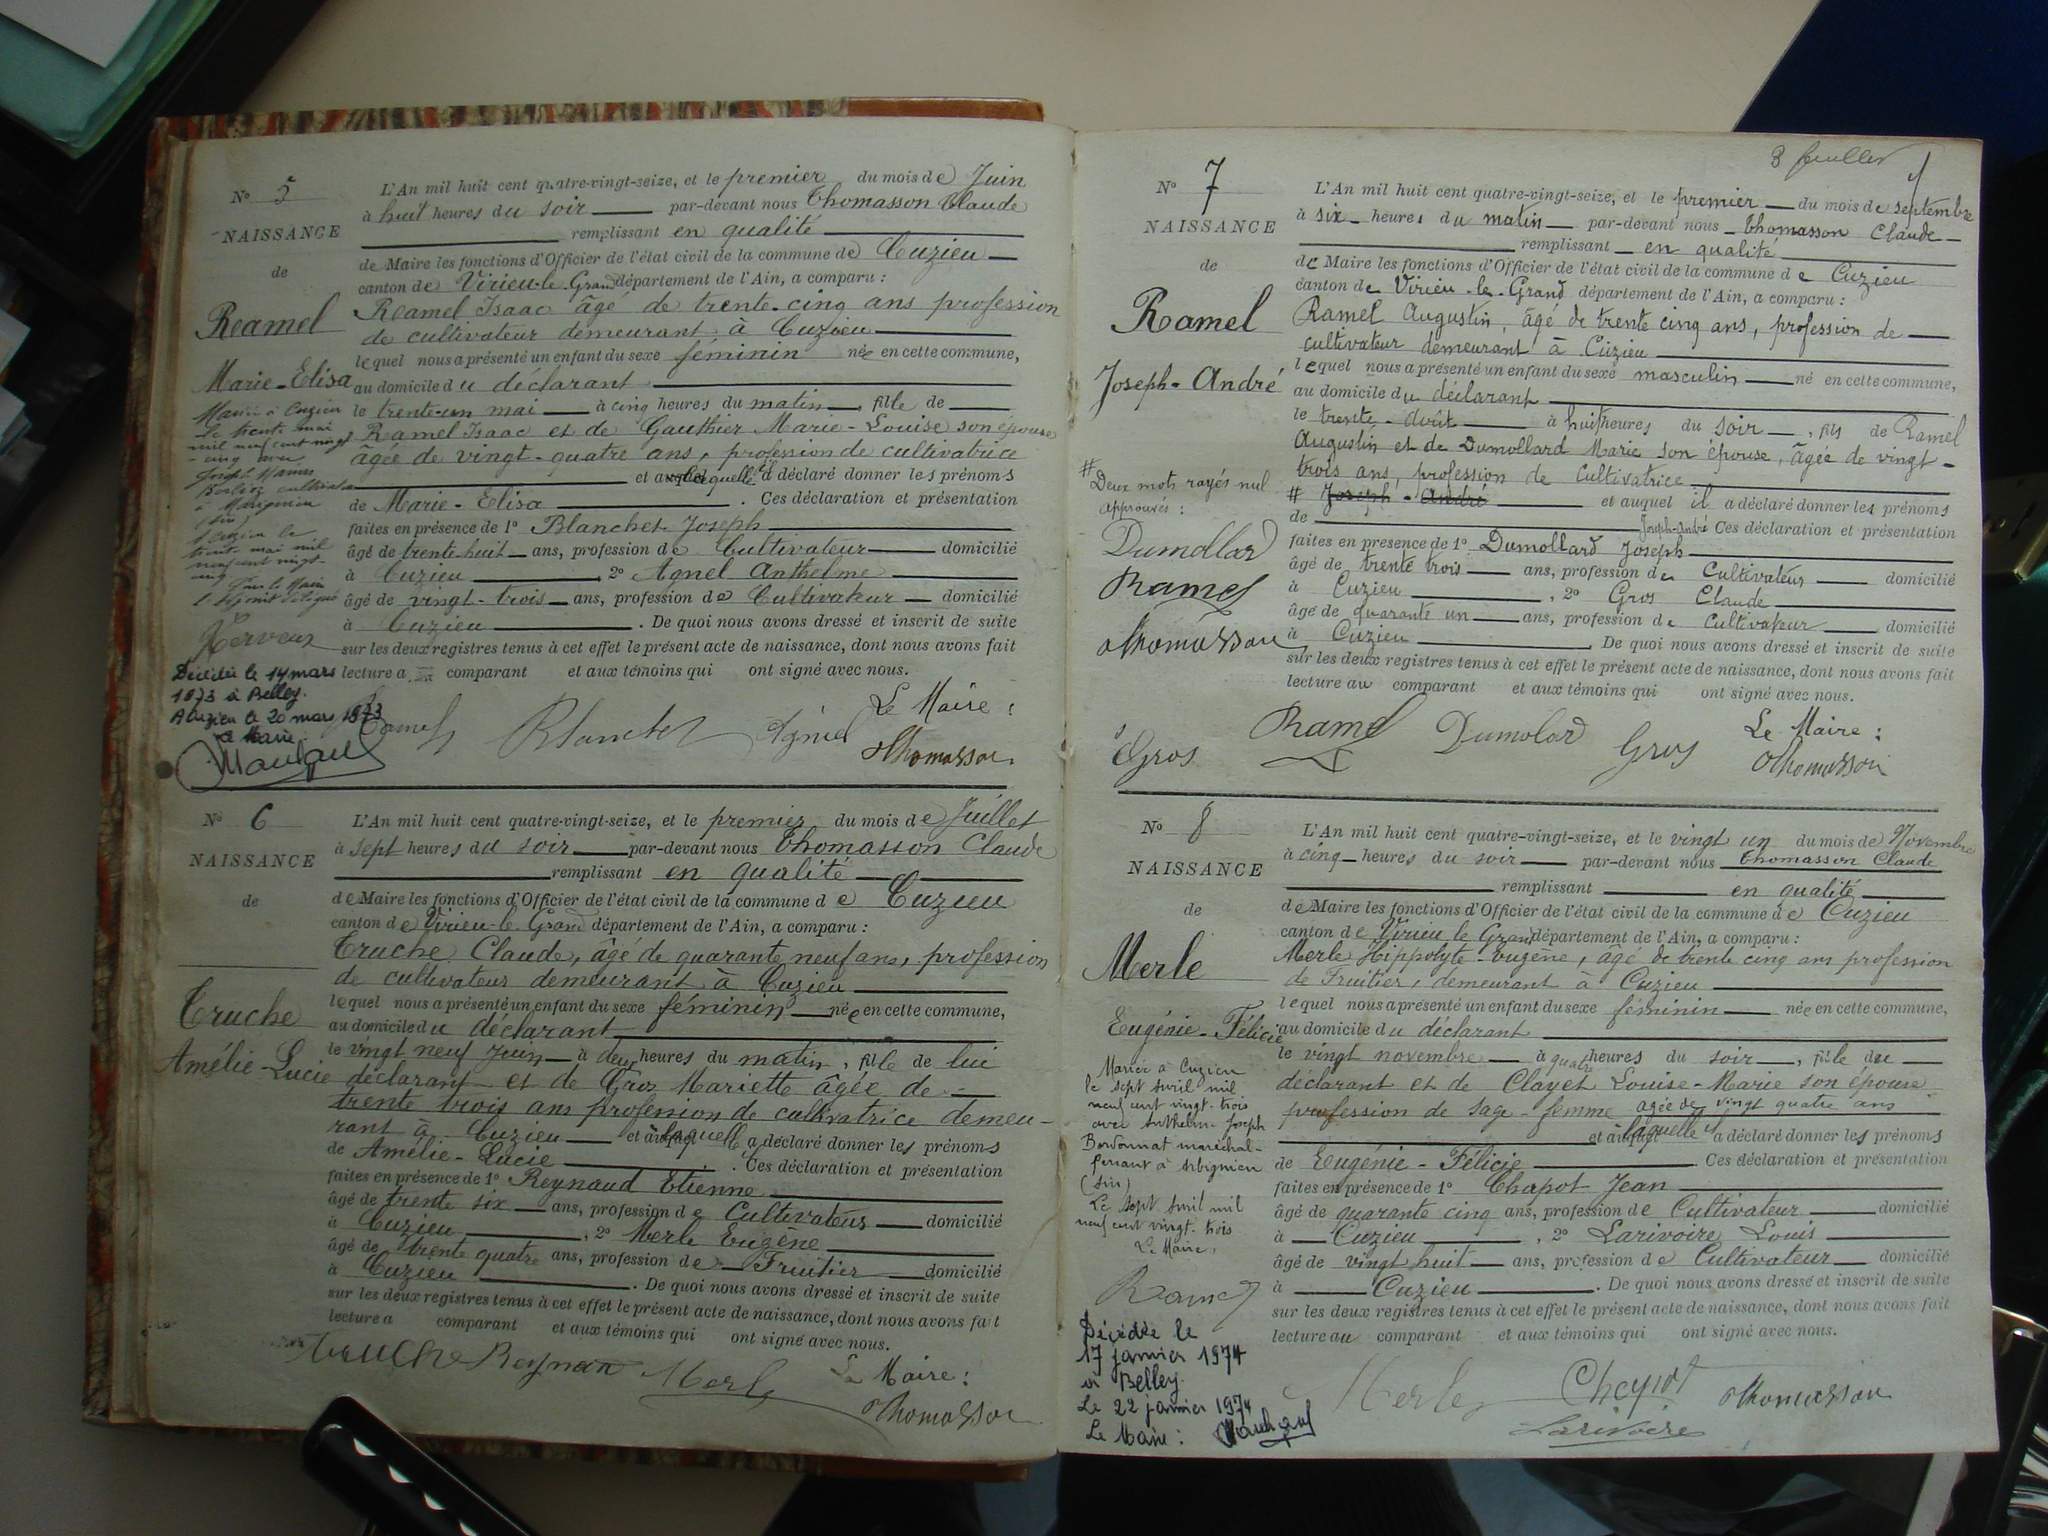 No 5
NAISSANCE
de
Ramel
Marie-Elisa
L'An mil huit cent quatre-vingt-seize, et le premier du mois de Juin
à huit heures du soir par-devant nous Thomasson Claude
remplissant en qualité
de Maire les fonctions d'Officier de l'état civil de la commune de Cuzieu
canton de Virieu-le-Grand département de l'Ain, a comparu :
Ramel Isaac âgé de trente-cinq ans profession
de cultivateur demeurant à Cuzieu
lequel nous a présenté un enfant du sexe féminin née en cette commune,
au domicile du déclarant
le trente-un mai à cinq heures du matin, fille de
Ramel Isaac et de Gauthier Marie-Louise son épouse
âgée de vingt-quatre ans, profession de cultivatrice
et à laquelle il a déclaré donner les prénoms
de Marie-Elisa. Ces déclaration et présentation
faites en présence de 1° Blanchet Joseph
âgé de trente-huit ans, profession de Cultivateur domicilié
à Cuzieu, 2° Agnel Anthelme
âgé de vingt-trois ans, profession de Cultivateur domicilié
à Cuzieu. De quoi nous avons dressé et inscrit de suite
sur les deux registres tenus à cet effet le présent acte de naissance, dont nous avons fait
lecture a comparant et aux témoins qui ont signé avec nous.
Mariée à Cuzieu
le trente mai
mil neuf cent vingt
-cinq avec
Joseph
cultivateur
à
(Ain)
Cuzieu le
trente mai mil
neuf cent vingt-
cinq
Pour le Maire
Décédée le 14 mars
1973 à Belley.
A Cuzieu le 20 mars 1973
Le Maire
Ramel Blanchet Agnel Le Maire :
Thomasson
No 6
NAISSANCE
de
Truche
Amélie-Lucie
L'An mil huit cent quatre-vingt-seize, et le premier du mois de Juillet
à sept heures du soir par-devant nous Thomasson Claude
remplissant en qualité
de Maire les fonctions d'Officier de l'état civil de la commune de Cuzieu
canton de Virieu-le-Grand département de l'Ain, a comparu :
Truche Claude, âgé de quarante neuf ans, profession
de cultivateur demeurant à Cuzieu
lequel nous a présenté un enfant du sexe féminin née en cette commune,
au domicile du déclarant
le vingt neuf Juin à deux heures du matin, fille de lui
déclarant et de Gros Mariette âgée de
trente trois ans profession de cultivatrice demeu-
rant à Cuzieu et à laquelle il a déclaré donner les prénoms
de Amélie-Lucie. Ces déclaration et présentation
faites en présence de 1° Reynaud Etienne
âgé de trente six ans, profession de Cultivateur domicilié
à Cuzieu, 2° Merle Eugène
âgé de trente quatre ans, profession de Fruitier domicilié
à Cuzieu. De quoi nous avons dressé et inscrit de suite
sur les deux registres tenus à cet effet le présent acte de naissance, dont nous avons fait
lecture a comparant et aux témoins qui ont signé avec nous.
Truche Reynau Merle Le Maire :
Thomasson
No 7
NAISSANCE
de
Ramel
Joseph-André
L'An mil huit cent quatre-vingt-seize, et le premier du mois de septembre
à six heures du matin par-devant nous Thomasson Claude
remplissant en qualité
de Maire les fonctions d'Officier de l'état civil de la commune de Cuzieu
canton de Virieu-le-Grand département de l'Ain, a comparu :
Ramel Augustin, âgé de trente cinq ans, profession de
cultivateur demeurant à Cuzieu
lequel nous a présenté un enfant du sexe masculin né en cette commune,
au domicile du déclarant
le trente-août à huit heures du soir, fils de Ramel
Augustin et de Dumollard Marie son épouse, âgée de vingt-
trois ans, profession de Cultivatrice
# Joseph-André et auquel il a déclaré donner les prénoms
de Joseph-André Ces déclaration et présentation
faites en présence de 1° Dumollard Joseph
âgé de trente trois ans, profession de Cultivateur domicilié
à Cuzieu, 2° Gros Claude
âgé de quarante un ans, profession de Cultivateur domicilié
à Cuzieu. De quoi nous avons dressé et inscrit de suite
sur les deux registres tenus à cet effet le présent acte de naissance, dont nous avons fait
lecture au comparant et aux témoins qui ont signé avec nous.
#
Deux mots rayés nul
approuvés :
Dumollard
Ramel
Thomasson
Gros
Ramel Dumolard Gros Le Maire :
Thomasson
No 8
NAISSANCE
de
Merle
Eugénie-Félicie
L'An mil huit cent quatre-vingt-seize, et le vingt un du mois de Novembre
à cinq heures du soir par-devant nous Thomasson Claude
remplissant en qualité
de Maire les fonctions d'Officier de l'état civil de la commune de Cuzieu
canton de Virieu le Grand département de l'Ain, a comparu :
Merle Hippolyte Eugène, âgé de trente cinq ans profession
de Fruitier, demeurant à Cuzieu
lequel nous a présenté un enfant du sexe féminin née en cette commune,
au domicile du déclarant
le vingt novembre à quatre heures du soir, fille du
déclarant et de Clayet Louise-Marie son épouse
profession de sage-femme agée de vingt quatre ans
et à laquelle il a déclaré donner les prénoms
de Eugénie-Félicie Ces déclaration et présentation
faites en présence de 1° Chapot Jean
âgé de quarante cinq ans, profession de Cultivateur domicilié
à Cuzieu, 2° Larivoire Louis
âgé de vingt huit ans, profession de Cultivateur domicilié
à Cuzieu. De quoi nous avons dressé et inscrit de suite
sur les deux registres tenus à cet effet le présent acte de naissance, dont nous avons fait
lecture au comparant et aux témoins qui ont signé avec nous.
Mariée à Cuzieu
le sept avril mil
neuf cent vingt-trois
avec Anthelme-Joseph
Bordonnat maréchal-
ferrant à Arbignieu
(Ain)
Le sept avril mil
neuf cent vingt-trois
Le Maire,
Ramel
Décédée le
17 janvier 1974
à Belley.
Le 22 janvier 1974
Le Maire :
Merle Chapot Thomasson
Larivoire